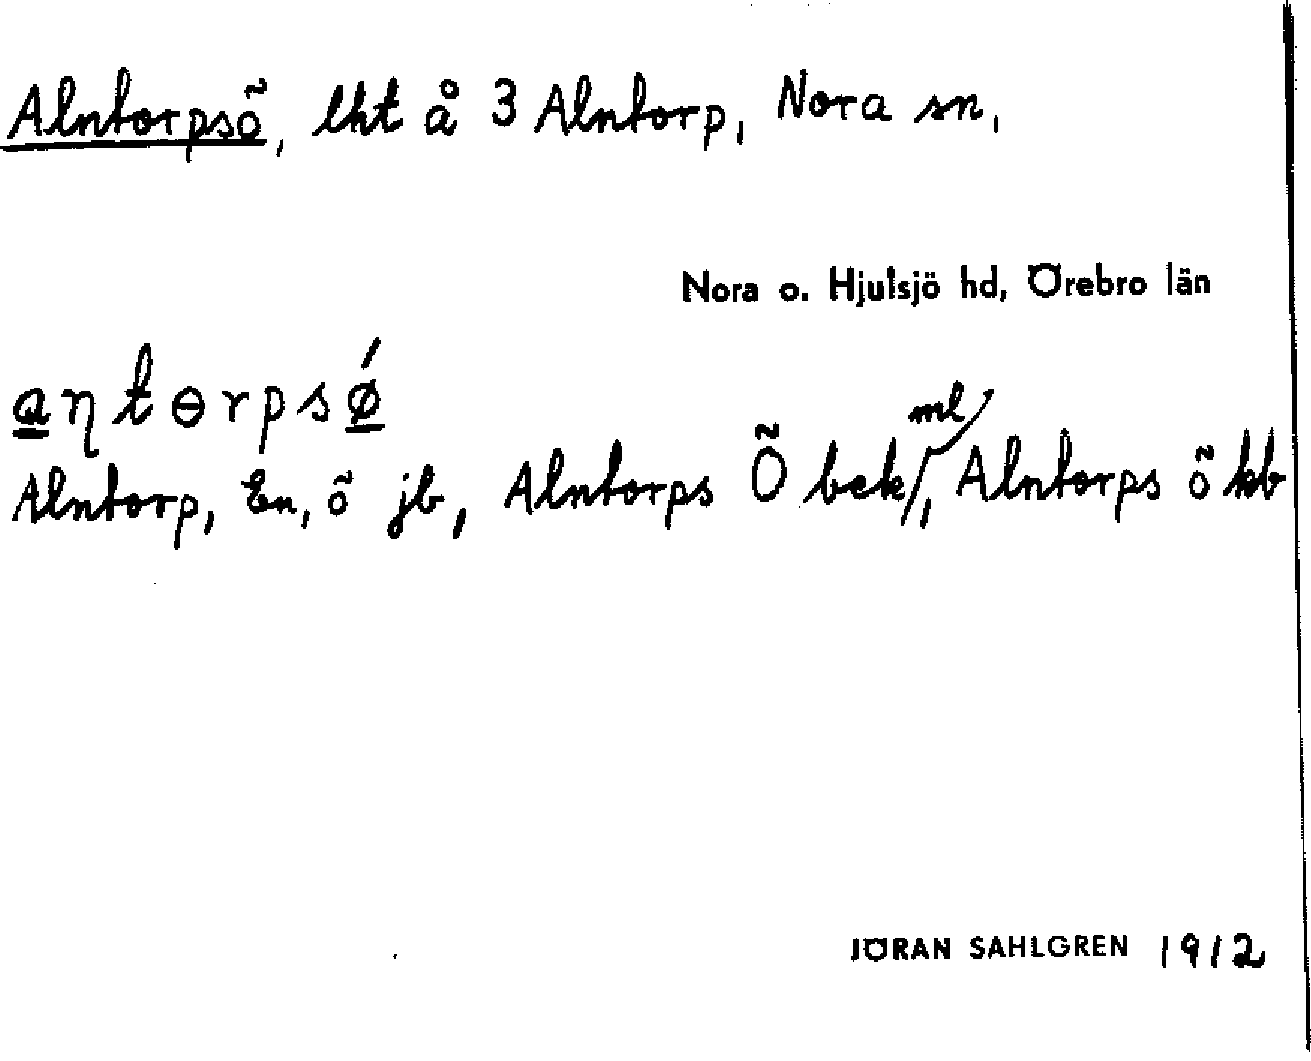 Alntorpsö, lht å 3 Alntorp, Nora sn,
Nora o. Hjulsjö hd, Örebro län
aηtɵrpsǿ
ml
Alntorp, En, ö jb, Alntorps Ö bek/, Alntorps ö kb
JÖRAN SAHLGREN 1912